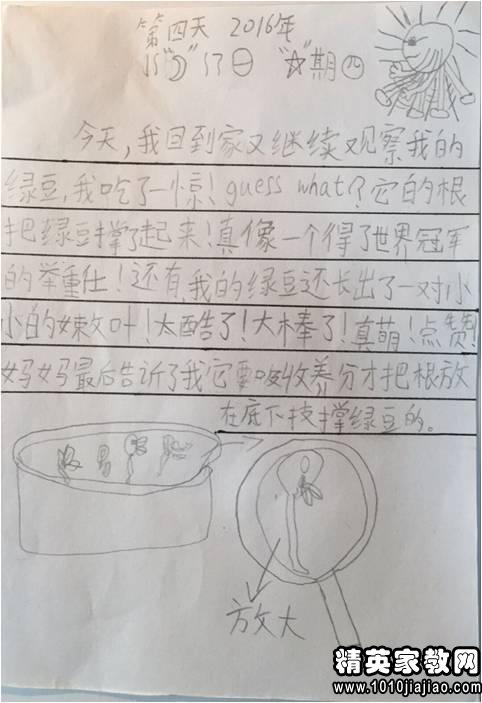 第四天 2016年
15“月”17日 “☆”期四
今天,我回到家又继续观察我的
绿豆,我吃了一惊!guess what?它的根
把绿豆撑了起来!真像一个得了世界冠军
的举重仕!还有,我的绿豆还长出了一对小
小的嫩叶!太酷了!太棒了!真萌!点赞!
妈妈最后告诉了我它要吸收养分才把根放
在底下支撑绿豆的。
放大
精英家教网
www.1010jiajiao.com